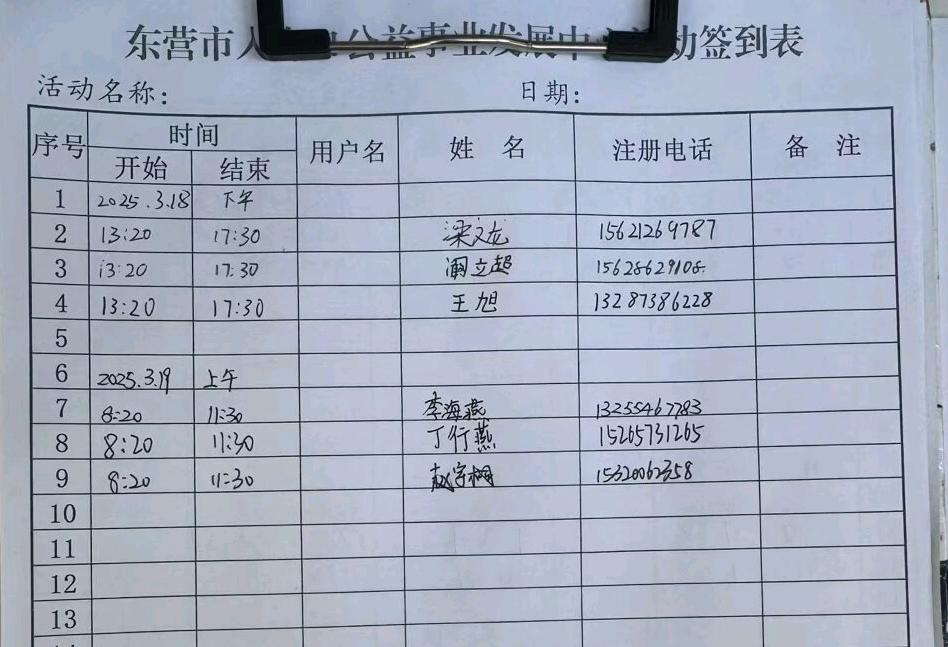 东营市人 公益事业发展中 动签到表
活动名称: 日期:
序号 时间 用户名 姓 名 注册电话 备 注
开始 结束
1 2025.3.18 下午
2 13:20 17:30 梁文龙 15621269787
3 13:20 17:30 阚立超 15628629108
4 13:20 17:30 王旭 13287386228
5
6 2025.3.19 上午
7 8:20 11:30 李海燕 13255467783
8 8:20 11:30 丁行燕 15265731265
9 8:20 11:30 赵宇桐 15320062358
10
11
12
13